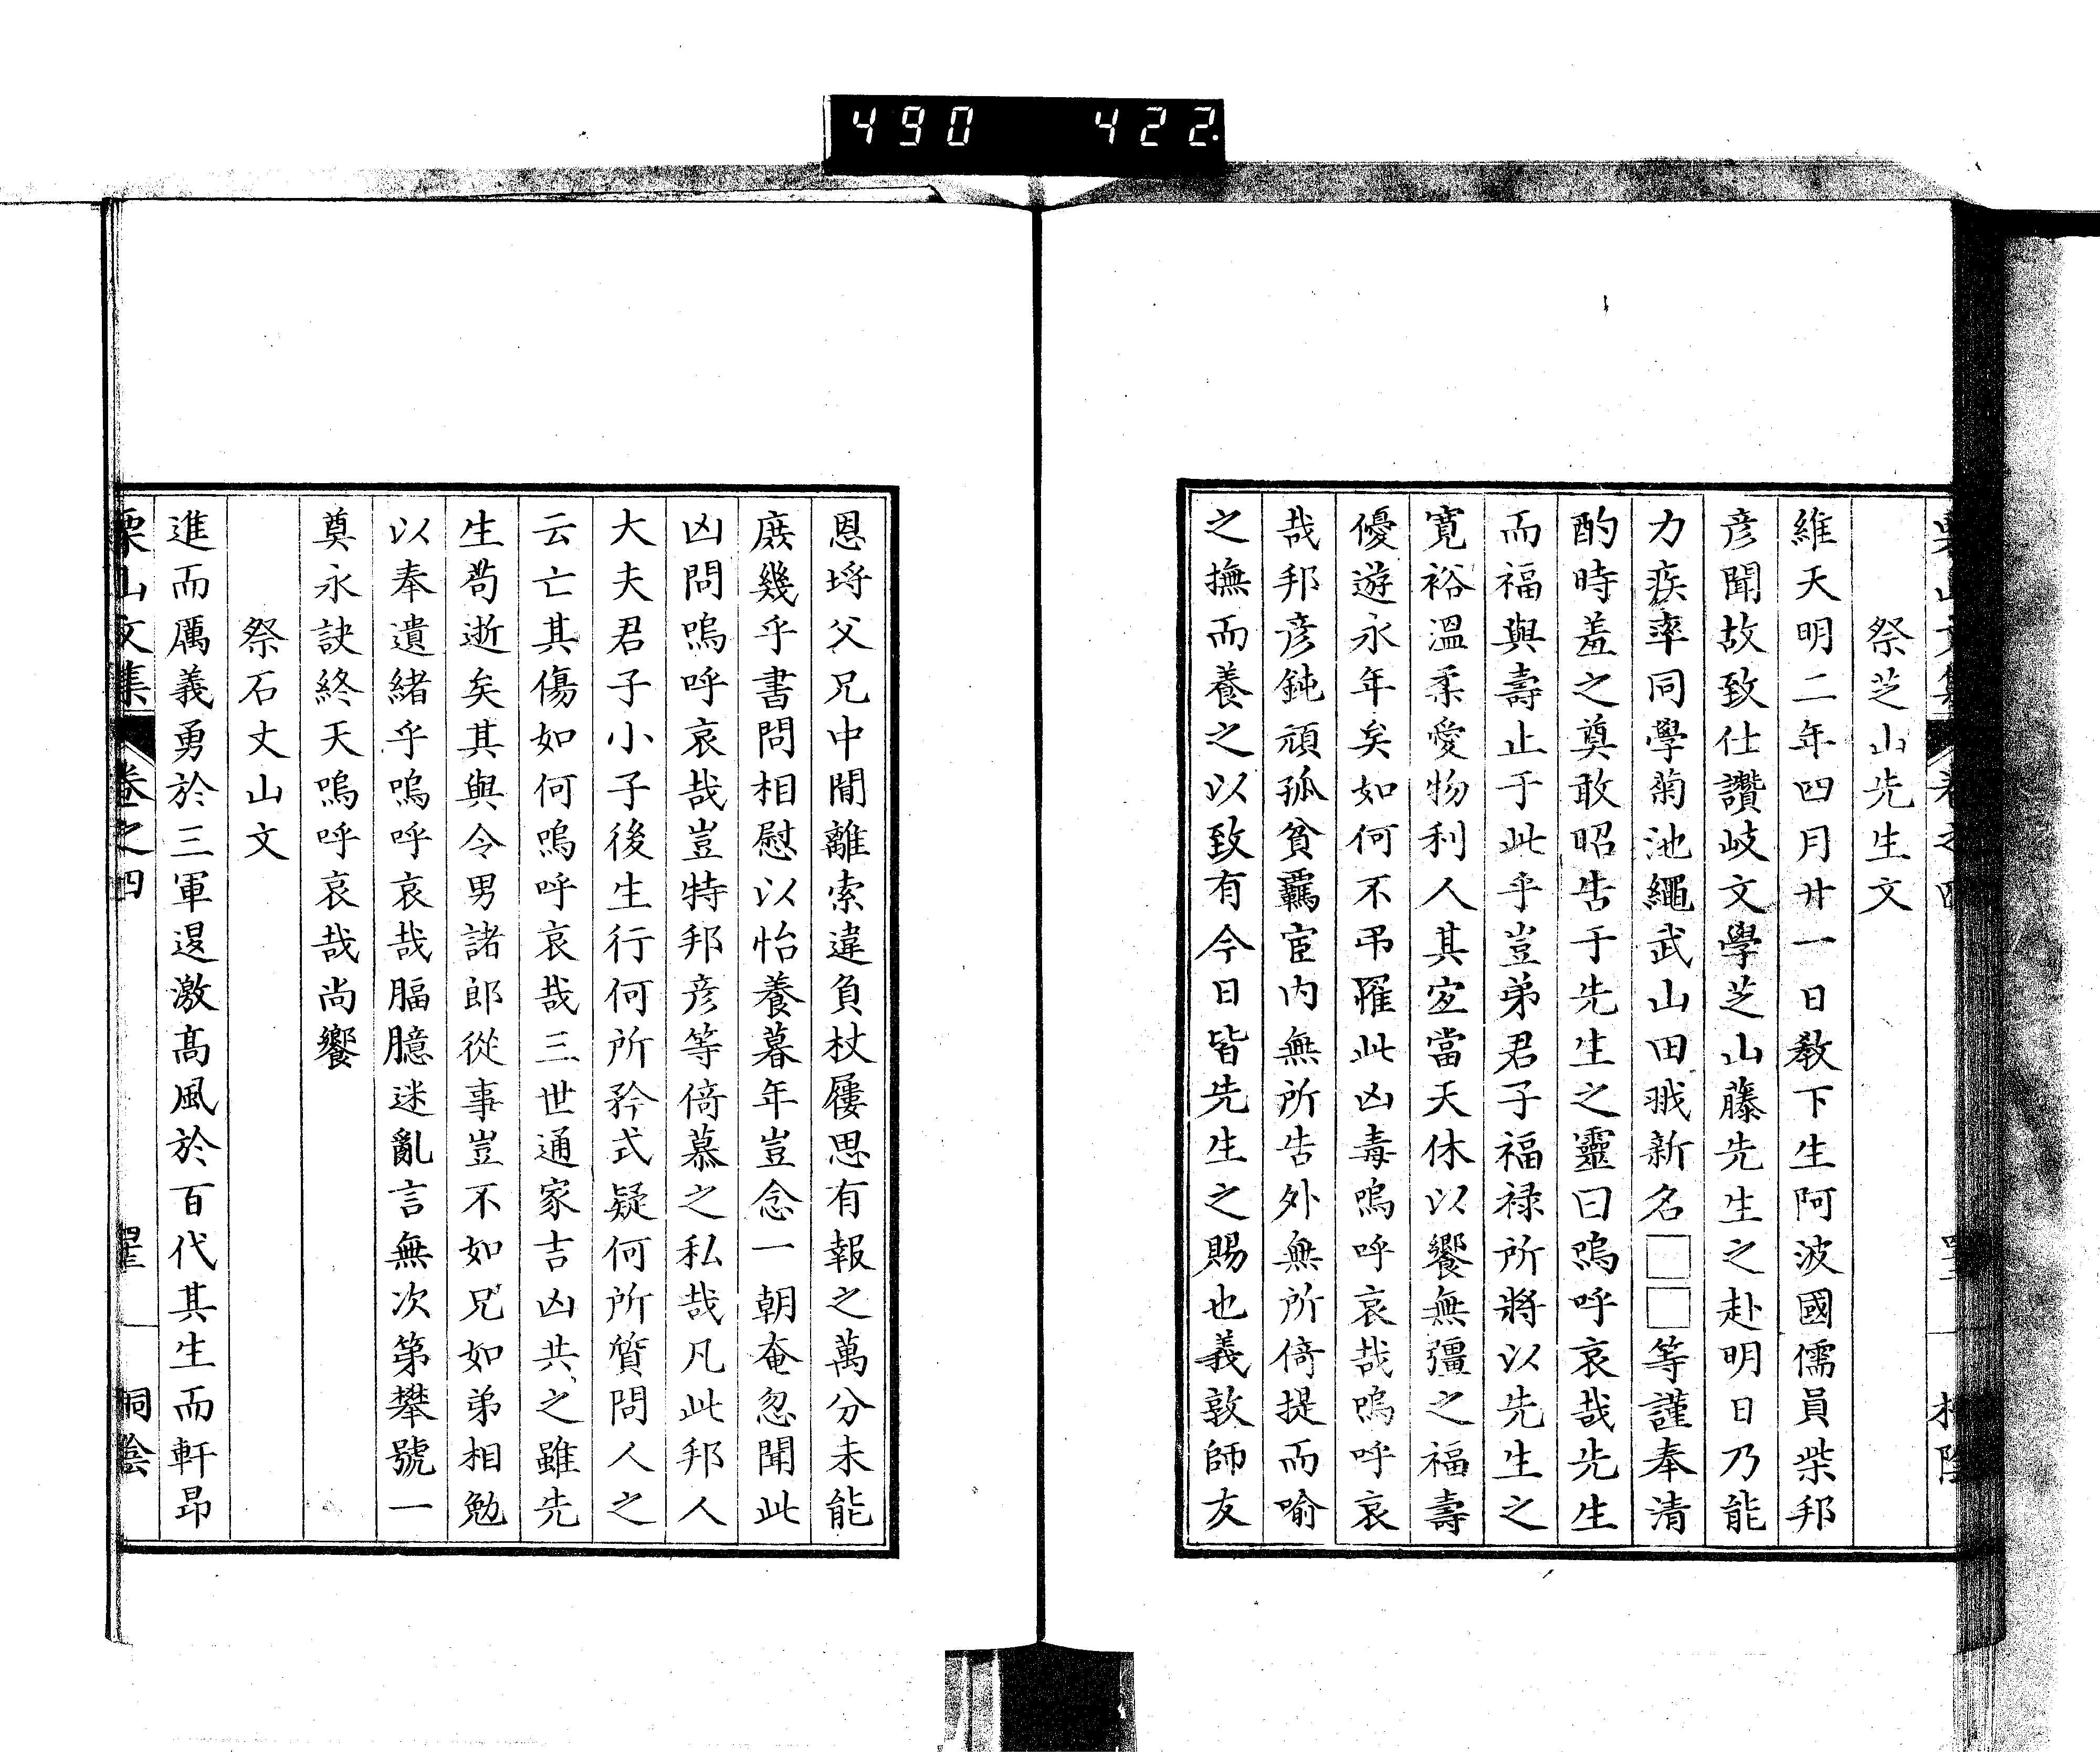 490 422
祭芝山先生文
維天明二年四月廿一日教下生阿波國儒員柴邦
彦聞故致仕讚岐文學芝山藤先生之赴明日乃能
力疾率同學菊池繩武山田戝新名□□等謹奉清
酌時羞之奠敢昭告于先生之靈曰嗚呼哀哉先生
而福與壽止于此乎豈弟君子福祿所將以先生之
寬裕溫柔愛物利人其宜當天休以饗無彊之福壽
優遊永年矣如何不弔罹此凶毒嗚呼哀哉嗚呼哀
哉邦彦鈍頑孤貧羈宦内無所告外無所倚提而喻
之撫而養之以致有今日皆先生之賜也義敦師友
恩埒父兄中間離索違負杖屨思有報之萬分未能
庶幾乎書問相慰以怡養暮年豈念一朝奄忽聞此
凶問嗚呼哀哉豈特邦彦等倚慕之私哉凡此邦人
大夫君子小子後生行何所矜式疑何所質問人之
云亡其傷如何嗚呼哀哉三世通家吉凶共之雖先
生苟逝矣其與令男諸郎從事豈不如兄如弟相勉
以奉遺緒乎嗚呼哀哉腷臆迷亂言無次第攀號一
奠永訣終天嗚呼哀哉尚饗
祭石丈山文
進而厲義勇於三軍退激高風於百代其生而軒昂
栗山文集 卷之四